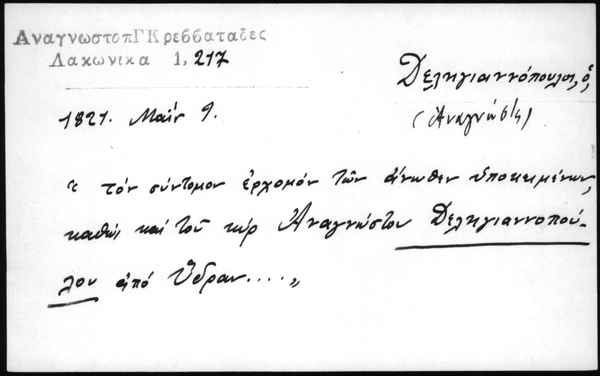 ΑναγνωστοπΓΚρεββαταδες
Λακωνικα 1, 217
Δεληγιαννόπουλος, ὁ
(Ἀναγνώστης)
1821. Μαΐου 9.
"τόν σύντομον ἐρχομόν τῶν ἄνωθεν ὑποκειμένων,
καθώς καί τοῦ κύρ Ἀναγνώστου Δεληγιαννοπού-
λου ἀπό Ὕδραν....."